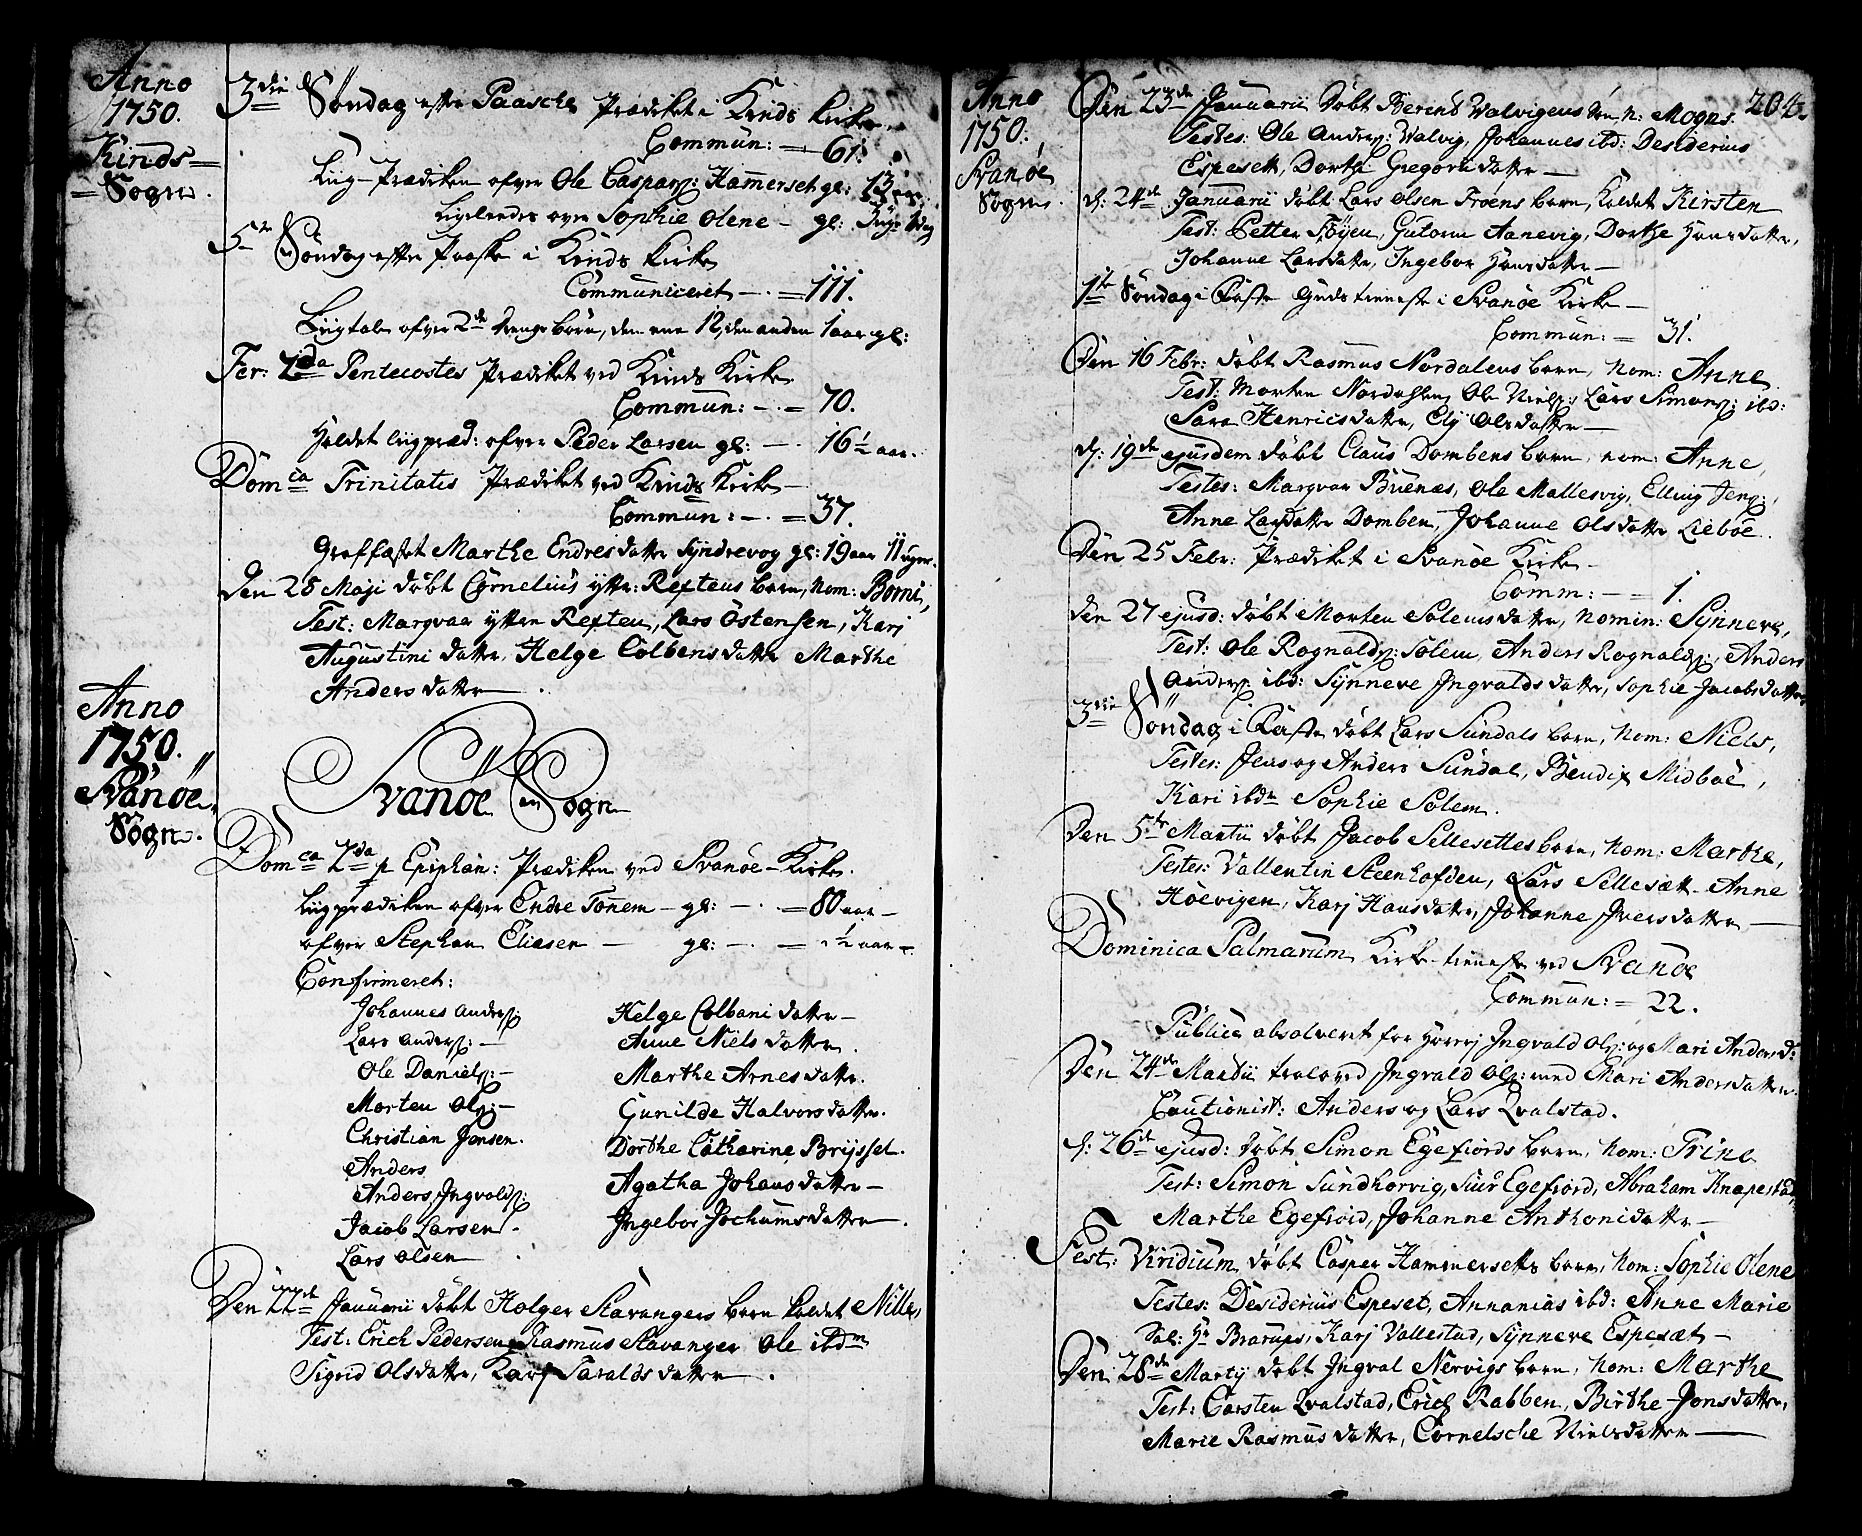 Anno
1750.
Kinds=
=Sogn.
3die Søndag efter Paasche Prædiket i Kinds Kirke
Commun: — 61.
Liig-Prædiken ofver Ole Caspars: Hamerset gl: 13 aar
Ligeledes over Sophie Olene — gl:
5te Søndag efter Paaske i Kinds Kirke
Communiceret — = 111.
Liigtale ofver 2de Drenge børn, den ene 12, den anden 1 aar gl:
Fer: 2da Pentecostes Prædiket ved Kinds Kirke
Commun: — = 70.
Holdet liigpræd: ofver Peder Larsen gl: — 16½ aar.
Domca Trinitatis Prædiket ved Kinds Kirke —
Commun: — = 37.
Graffæstet Marthe Endresdatter Syndrevog gl: 19 aar 11 uger.
Den 28 Maji døbt Cornelius ytter: Rextens barn, nom: Borni,
Test: Margvar ytter Rexten, Lars Østensen, Karj
Augustini datter, Helge Colbensdatter Marthe
Andersdatter —.
Anno
1750.
Svanöe
Sogn.
Svanöe Sogn
Domca 2da p Epiphan: Prædiken ved Svanöe-Kirke.
Liigprædiken ofver Endre Tonem — gl: — = 80 aar —
ofver Stephan Eliesen — gl: — = ½ aar —
Confirmeret:
Johannes Anders: Helge Colbani datter —
Lars Anders: — Anne Niels datter.
Ole Daniels: — Marthe Arnes datter.
Morten Ols: — Gunilde Halvors datter.
Christian Jensen. Dorthe Catharine Brijssel.
Anders
Anders Ingvalds: Agatha Johans datter —
Jacob Larsen. Ingebor Jochumsdatter —.
Lars Olsen —
Den 22de Januarii døbt Holger Stavangers barn kaldet Nille,
Test: Erich Pedersen, Rasmus Stavanger Ole ibdm
Sigrid Olsdatter, Karj Taraldsdatter —.
Anno
1750.
Svanöe
Sogn.
204.
Den 23de Januarii døbt Berend Valvigens Søn, n: Mogns.
Testes: Ole Anders: Valvig, Johannes ibd: Desiderius
Espeseth, Dorthe Gregorii datter —
d: 24de Januarii døbt Lars Olsen Troens barn, kaldet Kirsten
Test: Petter Föyen, Gutorm Aanevig, Dorthe Hansdatter,
Johanne Larsdatter, Ingebor Hansdatter —
1te Søndag i Faste Gudstieneste i Svanöe Kirke —
Commun: = 31.
Den 16 Febr: døbt Rasmus Nordalens barn, nom: Anne
Test: Morten Nordahlen, Ole Niels: Lars Simons: ibd:
Sara Henricsdatter, Elj Olsdatter —
d: 19de ejusdem døbt Claus Dombens barn, nom: Anne,
Testes: Margvar Buenæs, Ole Mallesvig, Elling Jens:,
Anne Larsdatter Domben, Johanne Olsdatter Lieböe.
Den 25 Febr: Prædiket i Svanöe Kirke —
Comm: — = 1.
den 27 ejusd: døbt Morten Solemsdatter, nomin: Synneve,
Test: Ole Rognalds: Solem, Anders Rognalds:, Anders
Anders: ibd: Synneve Ingvaldsdatter, Sophie Jacobsdatter
3die Søndag i Faste døbt Lars Sundals barn, nom: Niels,
Testes: Jens og Anders Sundal, Bendix Midböe,
Kari ibdm Sophie Solem.
Den 5te Martii døbt Jacob Sellesettes barn, nom: Marthe,
Testes: Vallentin Steenhofden, Lars Sellesæt Anne
Höevigen, Karj Hansdatter, Johanne Iversdatter —
Dominica Palmarum Kirke-tieneste ved Svanöe
Commun: = 22.
Publice absolveret for Horerj Ingvald Ols: og Mari Anders D:
Den 24de Martii troloved Ingvald Ols: med Mari Andersdatter.
Cautionist: Anders og Lars Qvalstad.
d: 26de ejusd: døbt Simon Egefiords barn, nom: Trine
Test: Simon Sundhorvig, Siur Egefiord, Abraham Knapestad,
Marthe Egefiord, Johanne Anthonidatter —
Fest: Viridium døbt Casper Hammersets barn, nom: Sophie Olene
Testes: Desiderius Espeset, Annanias ibd: Anne Marie
Sal: Hr Brarups, Karj Vallestad, Synneve Espesæt —
Den 28de Martij døbt Ingval Nervigs barn, nom: Marthe
Test: Carsten Qvalstad, Erich Rabben, Birthe Jonsdatter,
Marie Rasmusdatter, Cornelsche Nielsdatter —